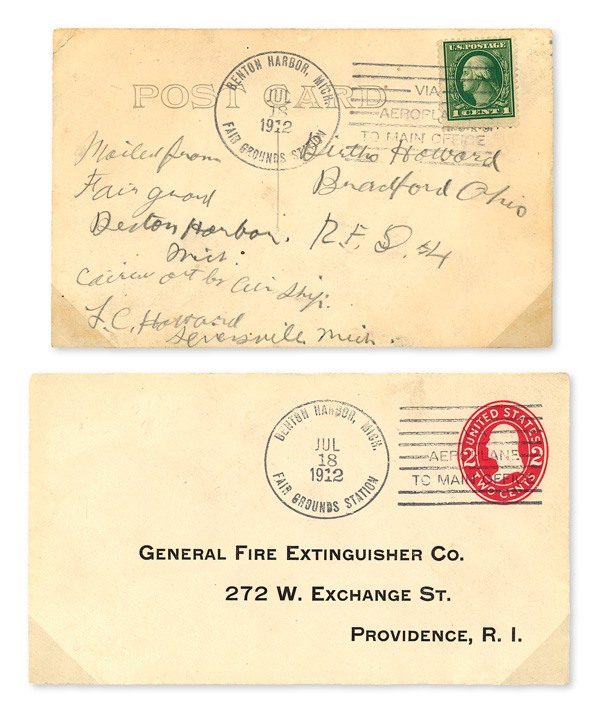 POST CARD
BENTON HARBOR, MICH.
JUL
18
1912
FAIR GROUNDS STATION
VIA
AEROPLANE
TO MAIN OFFICE
U.S. POSTAGE
1 CENT 1
Mailed from
Fair
Benton Harbor,
Mich.
by air ship.
F. C. Howard
Mich.
Howard
Bradford Ohio
R. F. D. #4
BENTON HARBOR, MICH.
JUL
18
1912
FAIR GROUNDS STATION
AEROPLANE
TO MAIN OFFICE
UNITED STATES
2 2
TWO CENTS
GENERAL FIRE EXTINGUISHER CO.
272 W. EXCHANGE ST.
PROVIDENCE, R. I.